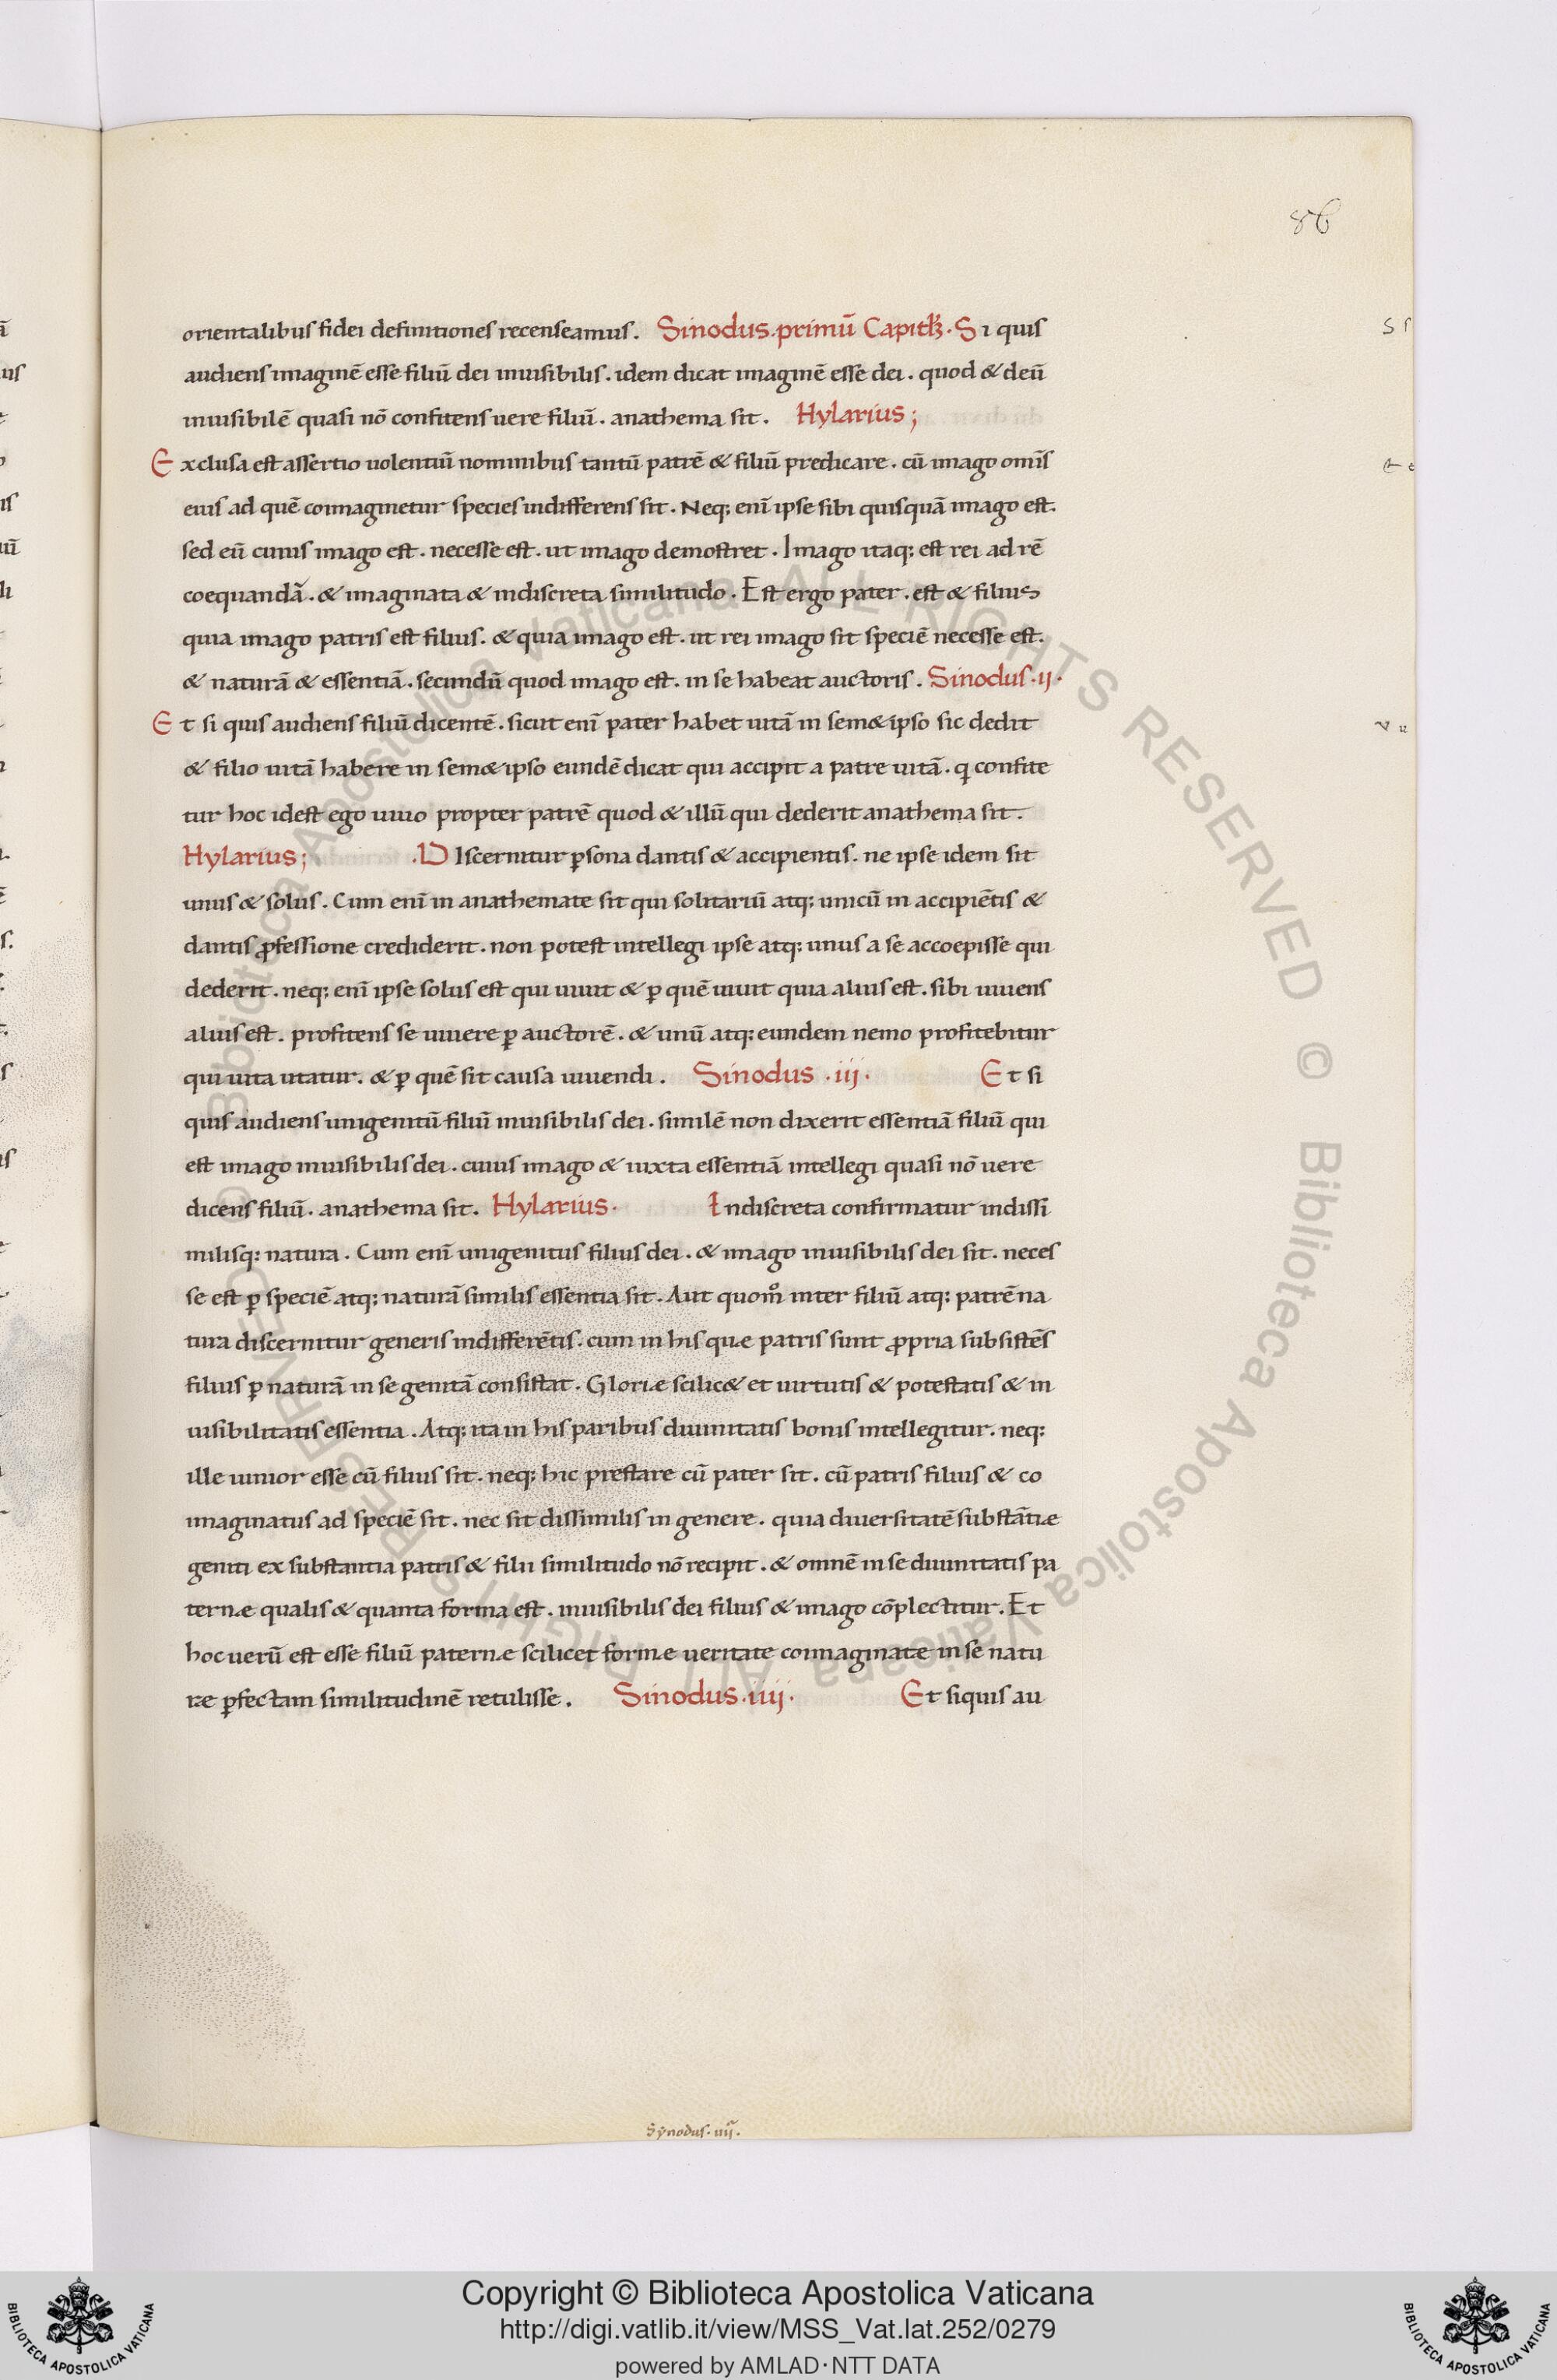 86
orientalibus fidei definitiones recenseamus. Sinodus. primū Capitł. Si quis
audiens imaginē esse filiū dei inuisibilis. idem dicat imaginē esse dei. quod & deū
inuisibilē quasi nō confitens uere filiū. anathema sit. Hylarius;
Exclusa est assertio uolentiū nominibus tantū patrē & filiū predicare. cū imago omīs
eius ad quē coimaginetur species indifferens sit. Neq; enī ipse sibi quisquā imago est.
sed eū cuius imago est. necesse est. ut imago demostret. Imago itaq; est rei ad rē
coequandā. & imaginata & indiscreta similitudo. Est ergo pater. est & filius
quia imago patris est filius. & quia imago est. ut rei imago sit speciē necesse est.
& naturā & essentiā. secundū quod imago est. in se habeat auctoris. Sinodus .ij.
Et si quis audiens filiū dicentē. sicut enī pater habet uitā in sem&ipso sic dedit
& filio uitā habere in sem&ipso eundē dicat qui accipit a patre uitā. q confite
tur hoc idest ego uiuo propter patrē quod & illū qui dederit anathema sit.
Hylarius; .Discernitur ꝑsona dantis & accipientis. ne ipse idem sit
unus & solus. Cum enī in anathemate sit qui solitariū atq; unicū in accipiētis &
dantis ꝓfessione crediderit. non potest intellegi ipse atq; unus a se accoepisse qui
dederit. neq; enī ipse solus est qui uiuit & ꝑ quē uiuit quia alius est. sibi uiuens
alius est. profitens se uiuere ꝑ auctorē. & unū atq; eundem nemo profitebitur
qui uita utatur. & ꝑ quē sit causa uiuendi. Sinodus .iij. Et si
quis audiens unigenitū filiū inuisibilis dei. similē non dixerit essentiā filiū qui
est imago inuisibilis dei. cuius imago & iuxta essentiā intellegi quasi nō uere
dicens filiū. anathema sit. Hylarius. Indiscreta confirmatur indissi
milisq; natura. Cum enī unigenitus filius dei. & imago inuisibilis dei sit. neces
se est ꝑ speciē atq; naturā similis essentia sit. Aut quom̊ inter filiū atq; patrē na
tura discernitur generis indifferētis. cum in his quæ patris sunt ꝓpria subsistēs
filius ꝑ naturā in se genitā consistat. Gloriæ scilic& et uirtutis & potestatis & in
uisibilitatis essentia. Atq; ita in his paribus diuinitatis bonis intellegitur. neq;
ille iunior esse cū filius sit. neq; hic prestare cū pater sit. cū patris filius & co
imaginatus ad speciē sit. nec sit dissimilis in genere. quia diuersitatē substātiæ
geniti ex substantia patris & filii similitudo nō recipit. & omnē in se diuinitatis pa
ternæ qualis & quanta forma est. inuisibilis dei filius & imago cōplectitur. Et
hoc uerū est esse filiū paternæ scilicet formæ ueritate coimaginatæ in se natu
ræ ꝑfectam similitudinē retulisse. Sinodus .iiij. Et siquis au
Synodus. iiij.
© Biblioteca Apostolica Vaticana ALL RIGHTS RESERVED © Biblioteca Apostolica Vaticana ALL RIGHTS RESERVED
Copyright © Biblioteca Apostolica Vaticana
http://digi.vatlib.it/view/MSS_Vat.lat.252/0279
powered by AMLAD·NTT DATA
BIBLIOTECA APOSTOLICA VATICANA
BIBLIOTECA APOSTOLICA VATICANA